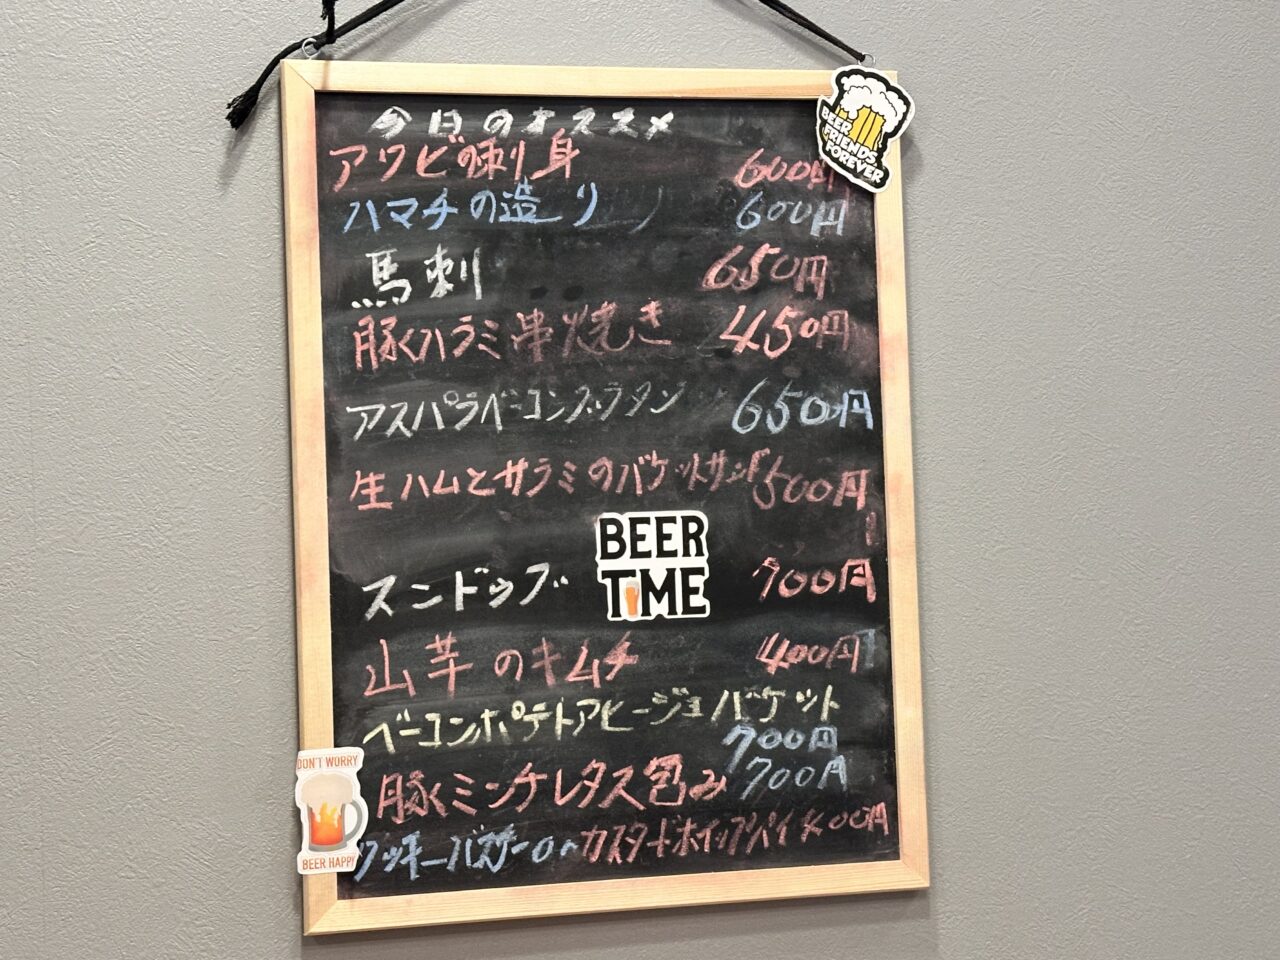 今日のオススメ
アワビの刺身 600円
ハマチの造り 600円
馬刺 650円
豚ハラミ串焼き 450円
アスパラベーコングラタン 650円
生ハムとサラミのバケットサンド 500円
スンドゥブ 700円
山芋のキムチ 400円
ベーコンポテトアヒージョバケット
700円
豚ミンチレタス包み 700円
クッキーバスサー or カスタードホイップパイ 400円
BEER FRIENDS FOREVER
BEER TIME
DON'T WORRY
BEER HAPPY